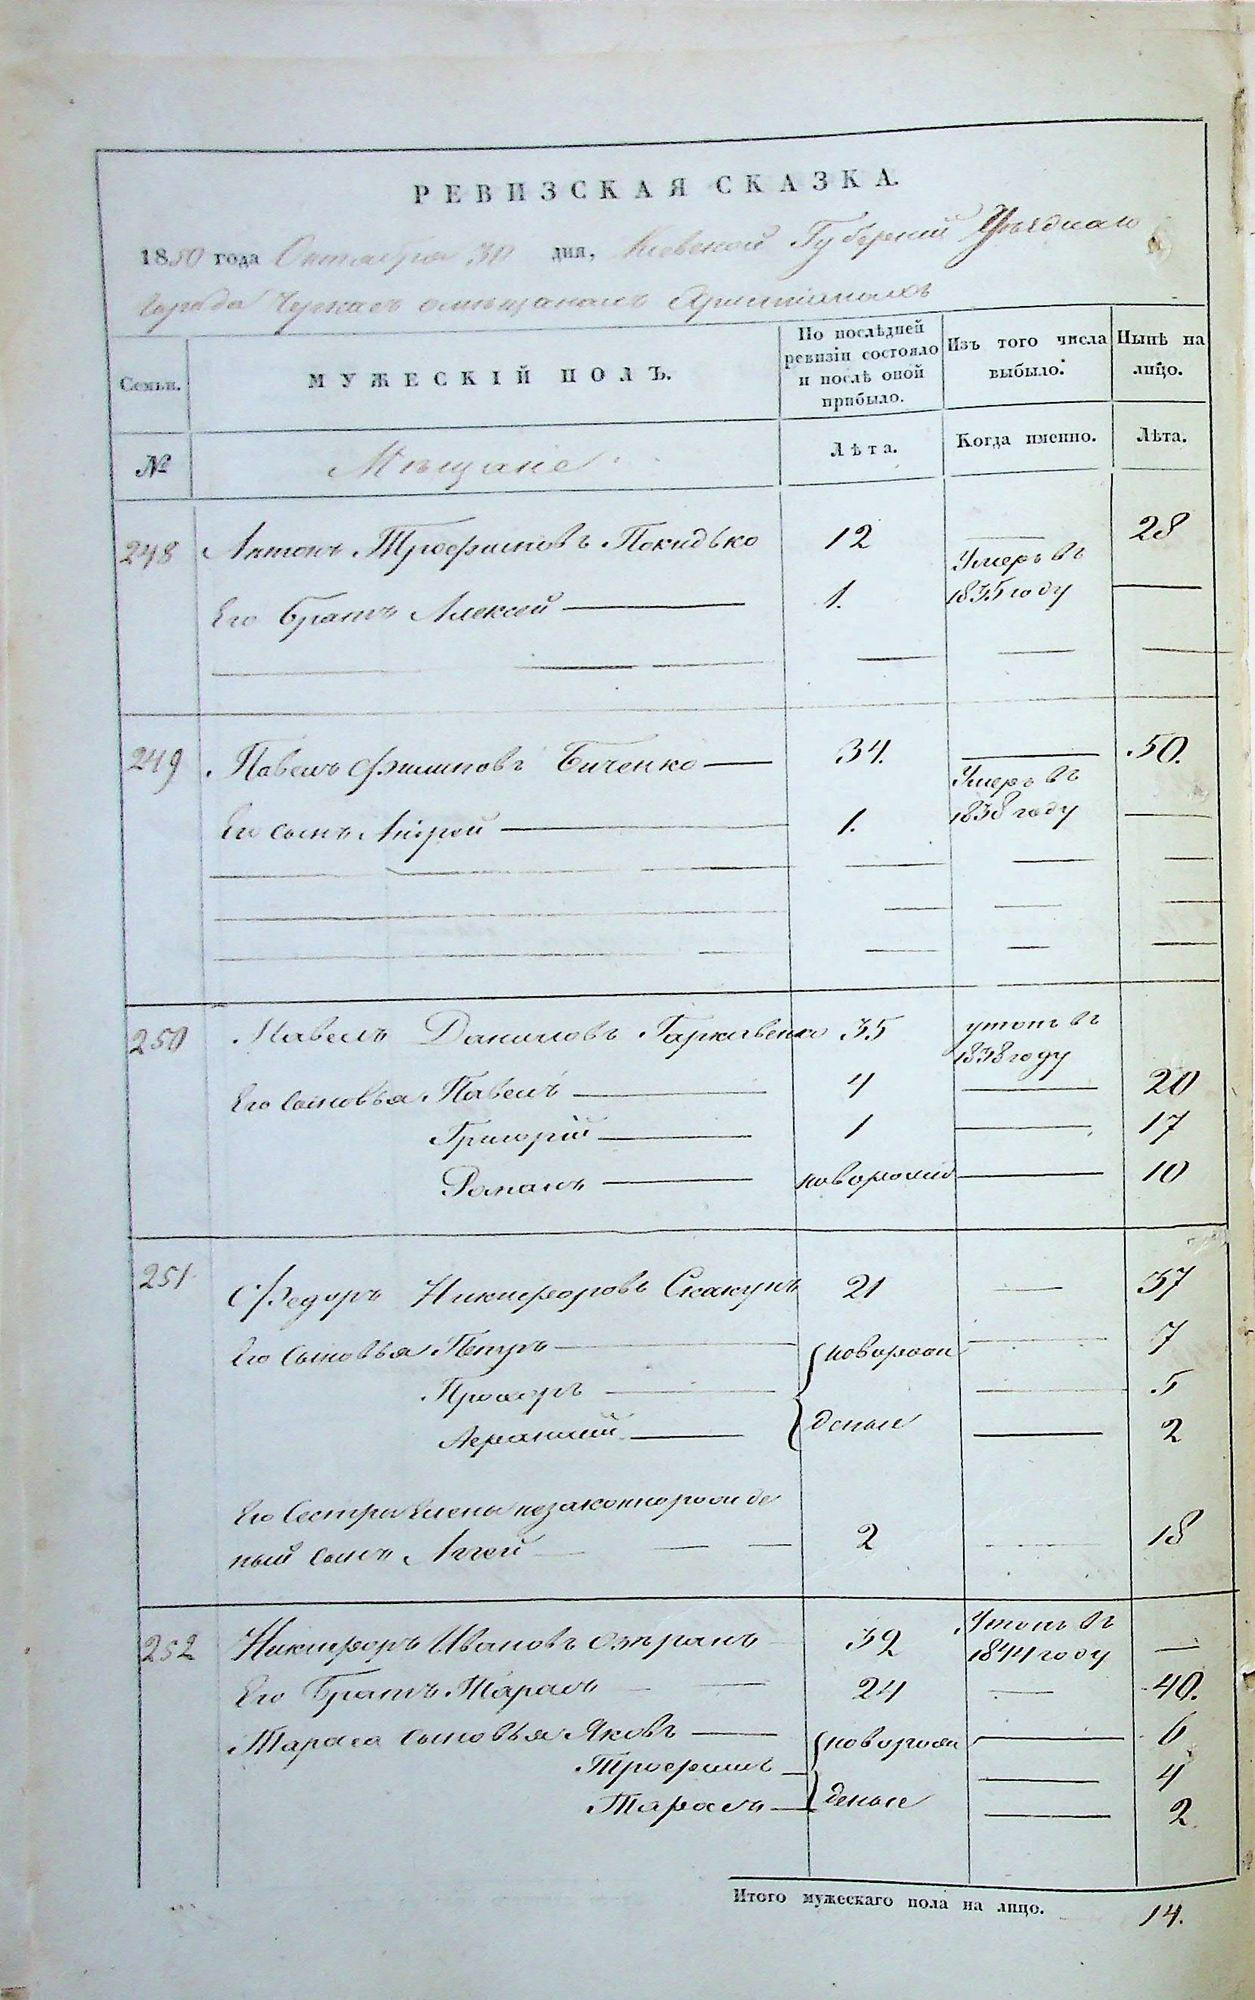 РЕВИЗСКАЯ СКАЗКА.
1850 года Октября 30 дня, Киевской Губернии Уѣзднаго
города Черкасъ о мѣщанахъ Христіанахъ
Семьи.
МУЖЕСКІЙ ПОЛЪ.
По послѣдней ревизіи состояло и послѣ оной прибыло.
Изъ того числа выбыло.
Нынѣ на лицо.
№
Мѣщане
Лѣта.
Когда именно.
Лѣта.
248 Антонъ Трофимовъ Покидько 12 — 28
Его братъ Алексей — 1. Умеръ въ 1835 году —
249 Павелъ Филиповъ Биченко — 34. — 50.
Его сынъ Андрей — 1. Умеръ въ 1838 году —
250 Павелъ Даниловъ Гаркавенко 35 утопъ въ 1838 году
Его сыновья Павелъ — 4 — 20
Григорій — 1 — 17
Романъ — новорожд — 10
251 Федоръ Никифоровъ Скакунъ 21 — 37
Его сыновья Петръ — новорож — 7
Прохоръ — — 5
Афанасий — деные — 2
Его Сестры Елены незаконнорожде
ный сынъ Аггей — 2 — 18
252 Никифоръ Ивановъ 39 Утопъ въ 1844 году —
Его братъ Тарасъ — 24 — 40.
Тараса сыновья Яковъ — новорож — 6
Трофимъ — — 4
Тарасъ — деные — 2
Итого мужескаго пола на лицо. 14.